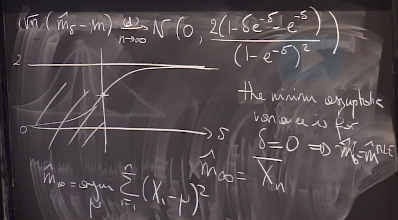 √n (m̂_δ − m) →^(d)_{n→∞} N(0, 2(1−δe^{−δ}−e^{−δ}) / (1−e^{−δ})²)
2
0
δ
the minimum asymptotic
variance is for
δ = 0 ⇒ m̂_0 = m̂^{MLE}
m̂_∞ = X̄_n
m̂_∞ = argmin_μ Σ_{i=1}^{n} (X_i − μ)²